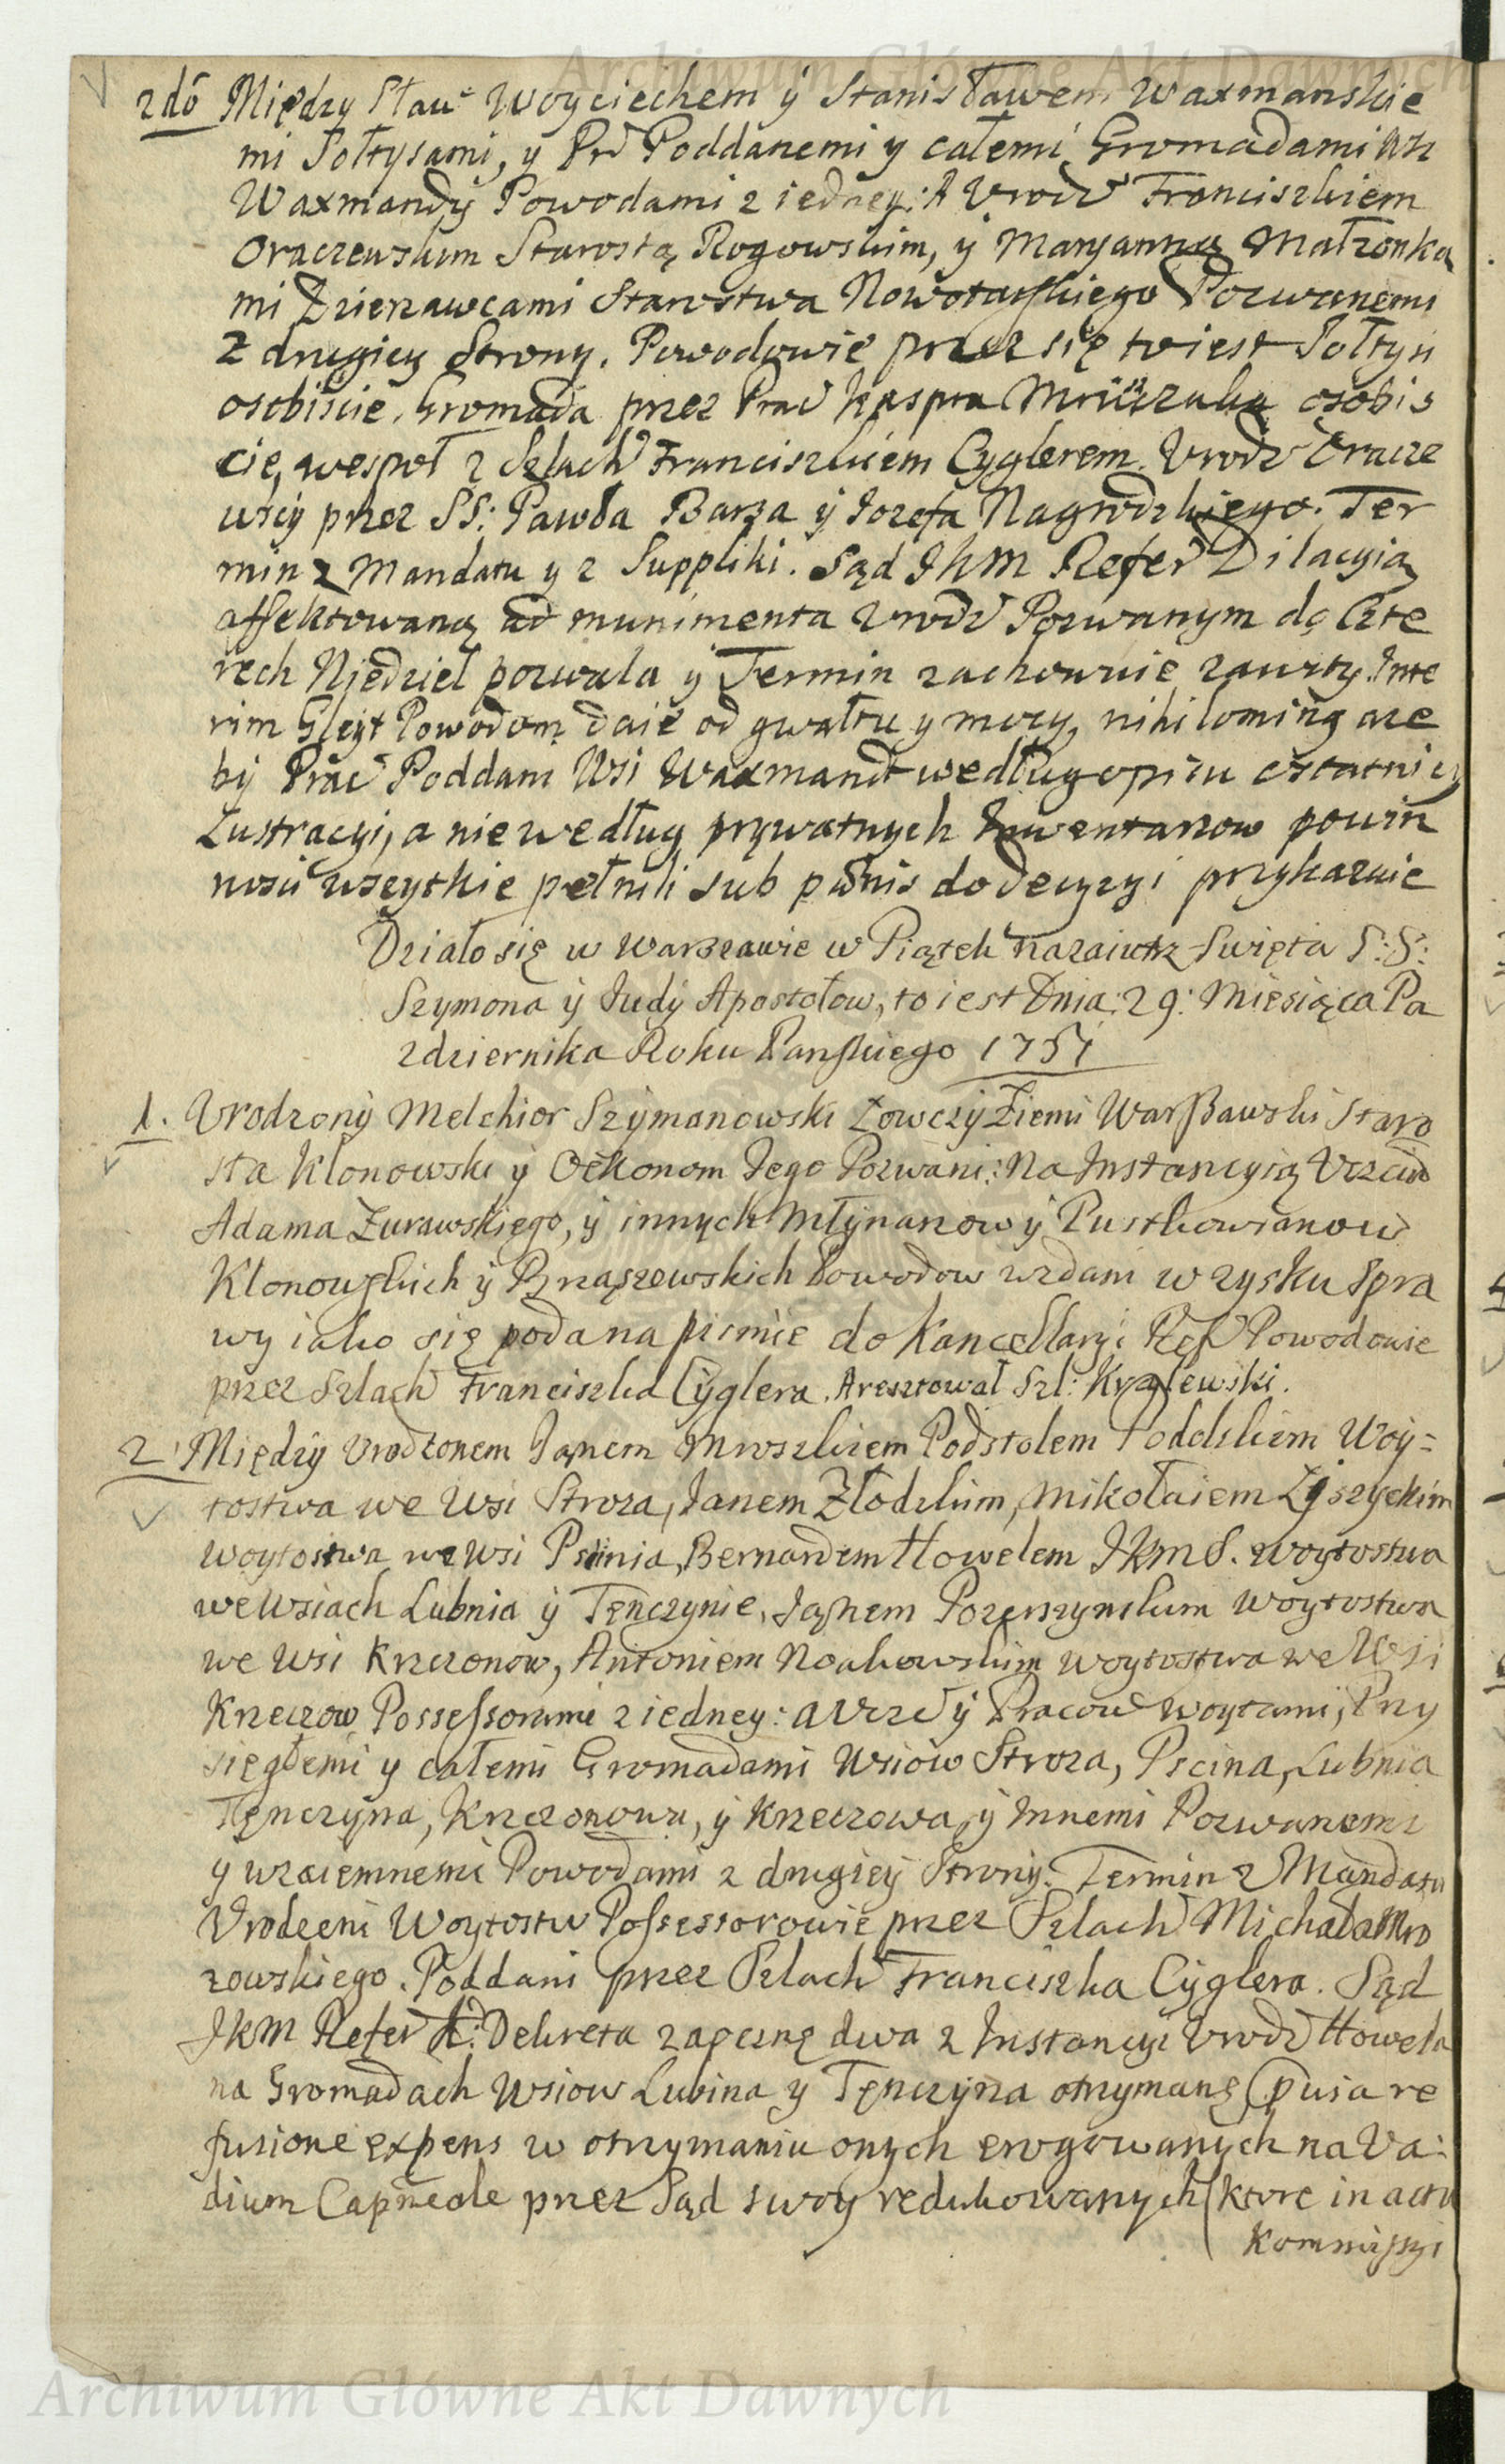 2dó Między Sław Woyciechem ÿ Stanisławem Waxmanskie
mi Sołtysami, y Pr Poddanemi y całemi Gromadami Wsi
Waxmandÿ Powodami z iedney: A Vrodz Franciszkiem
Oraczewskim Starostą Rogowskim, ÿ Maryanną Małzonka
mi Dzierzawcami Starostwa Nowotarskiego Pozwanemi
z drugiey Strony. Powodowie przez się to iest Sołtysi
osobiscie, Gromada przez Prac Kaspra osobis
cie, wespoł z Szlach Franciszkiem Cyglerem. Vrodz Oracze
wscy przez SS: Pawła Barza ÿ Jozefa Nagrodzkiego. Ter
min z Mandatu y z Suppliki. Sąd JKM Refer Dilacyią
affektowaną ad munimenta Vrodz Pozwanym do Czte
rech Niedziel pozwala ÿ Termin zachowuie zawity. Inte
rim Gleyt Powodom daie od gwałtu y mocy, nihilominq aze
by Prac Poddani Wsi Waxmand według opisu ostatniey
Lustracyi, a nie według prywatnych Inwentarzow powin
nosci wszytkie pełnili sub pænis do decyzyi przykazuie
Działo się w Warszawie w Piątek nazaiutrz Swięta S:S:
Szymona ÿ Judÿ Apostołow, to iest Dnia: 29: Miesiąca Pa
zdziernika Roku Panskiego 1751
1. Vrodzonÿ Melchior Szÿmanowski Łowczÿ Ziemi Warszawski Staro
sta Klonowski ÿ Oekonom Jego Pozwani: Na Instancyią Vczciw
Adama Zurawskiego, ÿ innych Młÿnarzow ÿ Pustkowianow
Klonowskich ÿ Brząszowskich Powodow wzdani w zysku Spra
wy iako się poda na pismie do Kancellaryi Ref Powodowie
przez Szlach Franciszka Cÿglera. Aresztował Szl: Kralewski.
2 Międzÿ Vrodzonem Janem Mroszkiem Podstolem Podolskiem Woy=
tostwa we Wsi Stroza, Janem Złodzkim, Mikołaiem Łyszyckim
Woytostwa we Wsi Pscinia, Bernardem Howelem JKMS. Woytostwa
we Wsiach Lubnia ÿ Tęnczynie, Janem Woytostwa
we Wsi Krzczonow, Antoniem Noakowskim Woytostwa we Wsi
Krzeczow Possessorami z iedney: a Vczc ÿ Pracow Woytami, Przy
sięgłemi y całemi Gromadami Wsiow Stroza, Pscina, Lubnia
Tęnczyna, Krzczonowa, ÿ Krzeczowa, ÿ Innemi Pozwanemi
y wzaiemnemi Powodami z drugieÿ Stronÿ. Termin z Mandatu
Vrodzeni Woytostw Possessorowie przez Szlach Michała Mro
zowskiego. Poddani przez Szlach Franciszka Cÿglera. Sąd
JKM Refer K: Dekreta zaoczne dwa z Instancyi Vrodz Howela
na Gromadach Wsiow Lubina y Tęnczÿna otrzymane (
fusione expens w otrzymaniu onych erogowanych na Va:
dium Capneale przez Sąd swoy redukowanych) ktore in actu
Kommissyi